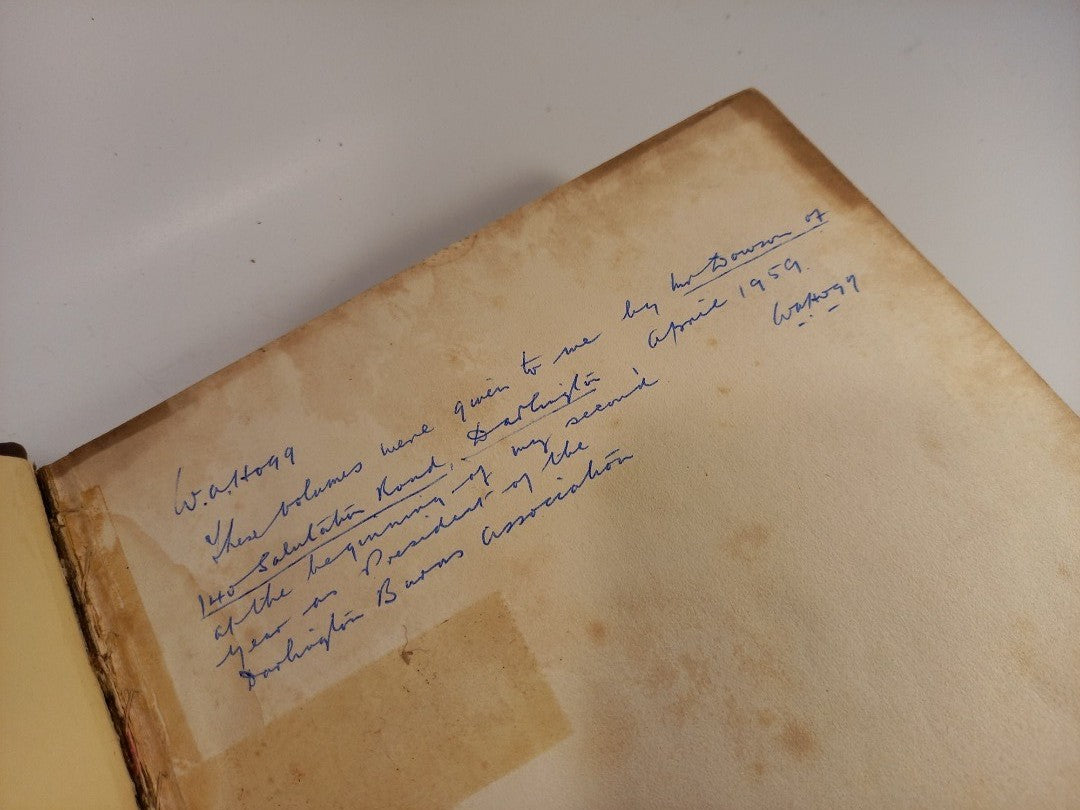 W.A. Hogg
These volumes were given to me by Mr Dowson of
140 Salutation Road, Darlington
at the beginning of my second
year as President of the
Darlington Burns Association
April 1959.
WAHogg